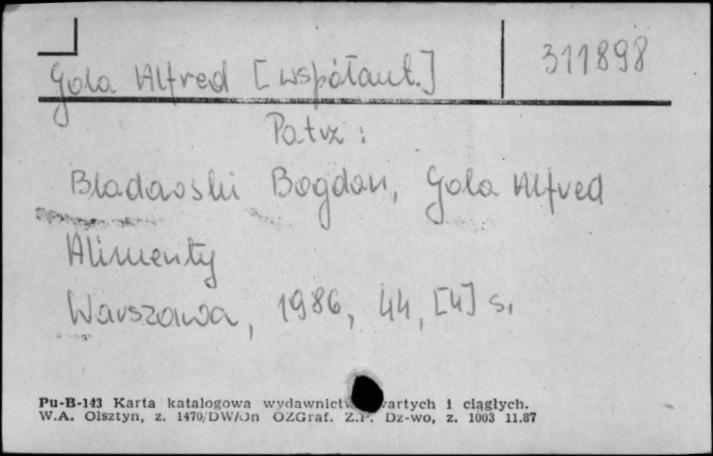 311898
Gola Alfred [współaut.]
Patrz:
Bladowski Bogdan, Gola Alfred
Alimenty
Warszawa, 1986, 44, [4] s.
Pu-B-143 Karta katalogowa wydawnict wartych i ciągłych.
W.A. Olsztyn, z. 1470/DWA/On OZGraf. Z.P. Dz-wo, z. 1003 11.87